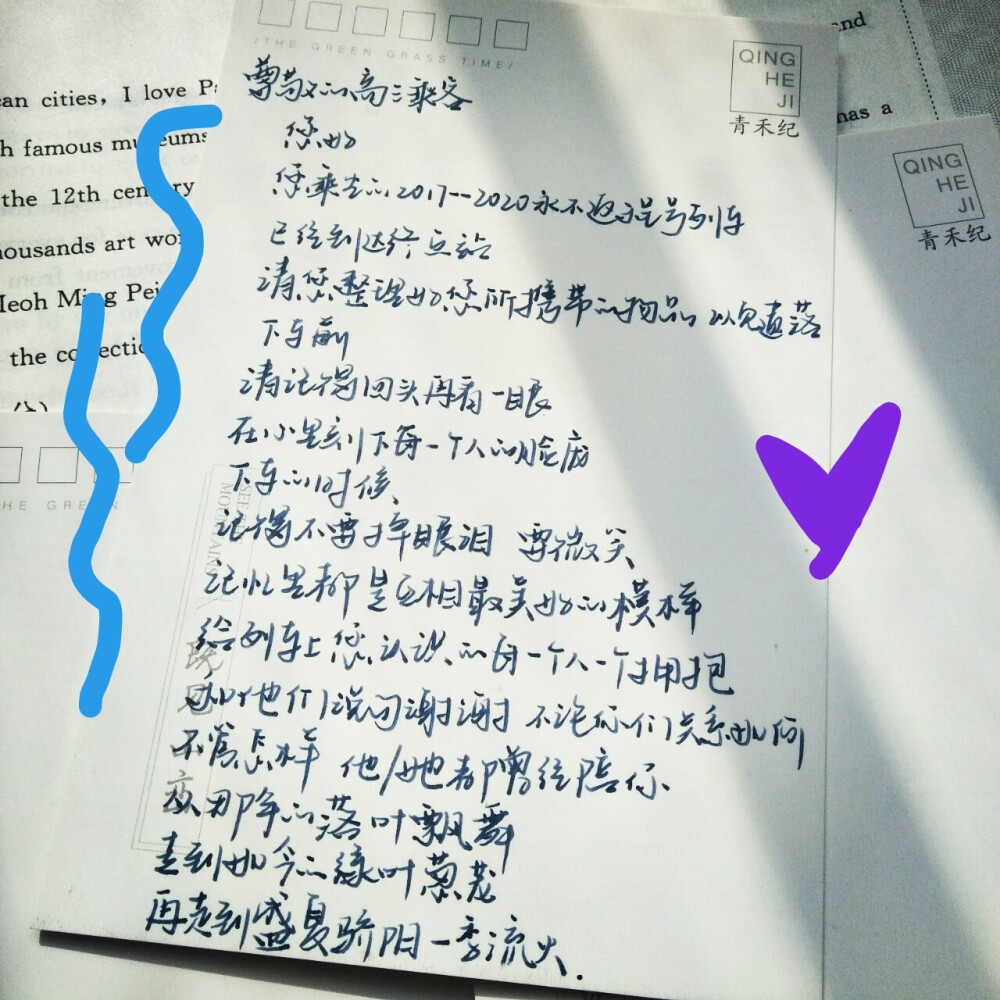 /THE GREEN GRASS TIME/
QING
HE
JI
青禾纪
尊敬的高三乘客
您好
您乘坐的2017--2020永不返程号列车
已经到达终点站
请您整理好您所携带的物品 以免遗落
下车前
请记得回头再看一眼
在心里刻下每一个人的脸庞
下车的时候
记得不要掉眼泪 要微笑
记忆里都是互相最美好的模样
给列车上您认识的每一个人一个拥抱
和他们说句谢谢 不论你们关系如何
不管怎样 他/她都曾经陪你
从那年的落叶飘舞
走到如今的绿叶葱茏
再走到盛夏骄阳一季流火.
QING
HE
JI
青禾纪
and
has a
can cities, I love
h famous museums
the 12th century
housands art
Ieoh Ming Pei
the
HE GREEN